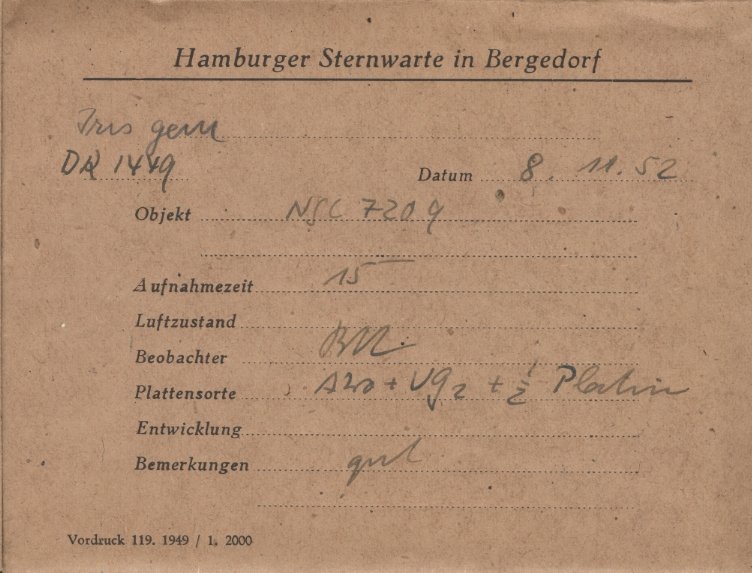 Hamburger Sternwarte in Bergedorf
DR 1449
Datum 8. 11. 52
Objekt NGC 7209
Aufnahmezeit 15
Luftzustand
Beobachter
Plattensorte + UG2 + 1/2 Platin
Entwicklung
Bemerkungen gut
Vordruck 119. 1949 / 1. 2000